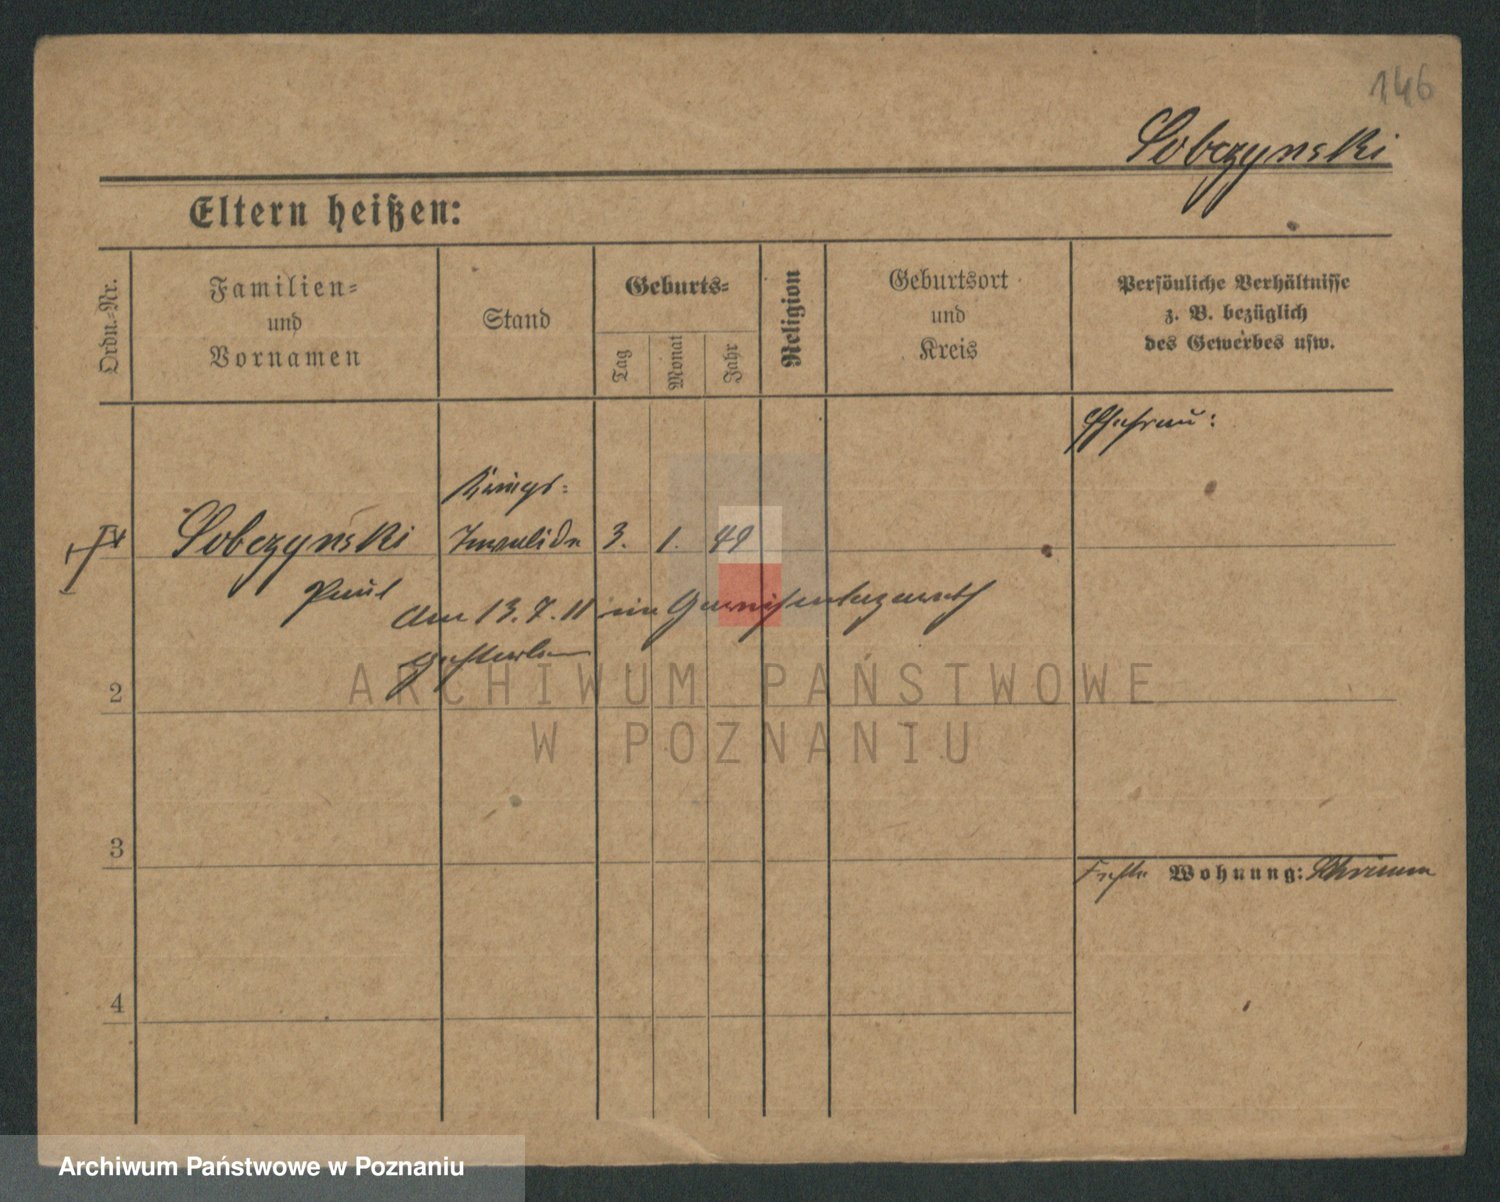 146
Sobczynski
Eltern heißen:
Ordn.-Nr.
Familien-
und
Vornamen
Stand
Geburts-
Tag
Monat
Jahr
Religion
Geburtsort
und
Kreis
Persönliche Verhältnisse
z. B. bezüglich
des Gewerbes usw.
Ehefrau:
Kriegs-
Sobczyński Invalide 3. 1. 49
Paul
Am 13.7.11 im Garnisonlazareth
gestorben
2
ARCHIWUM PAŃSTWOWE
W POZNANIU
3
Feste Wohnung: Schrimm
4
Archiwum Państwowe w Poznaniu